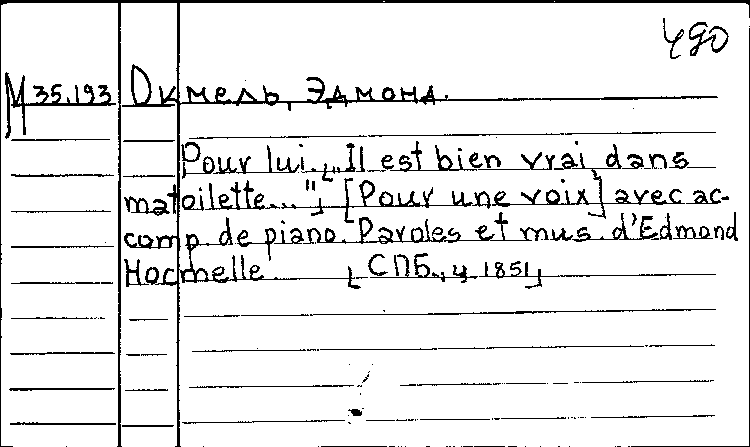 490
М 35.193 Окмель, Эдмонд.
Pour lui. ["Il est bien vrai, dans
ma toilette..."] [Pour une voix] avec ac-
comp. de piano. Paroles et mus. d'Edmond
Hocmelle. [СПб., ц. 1851]